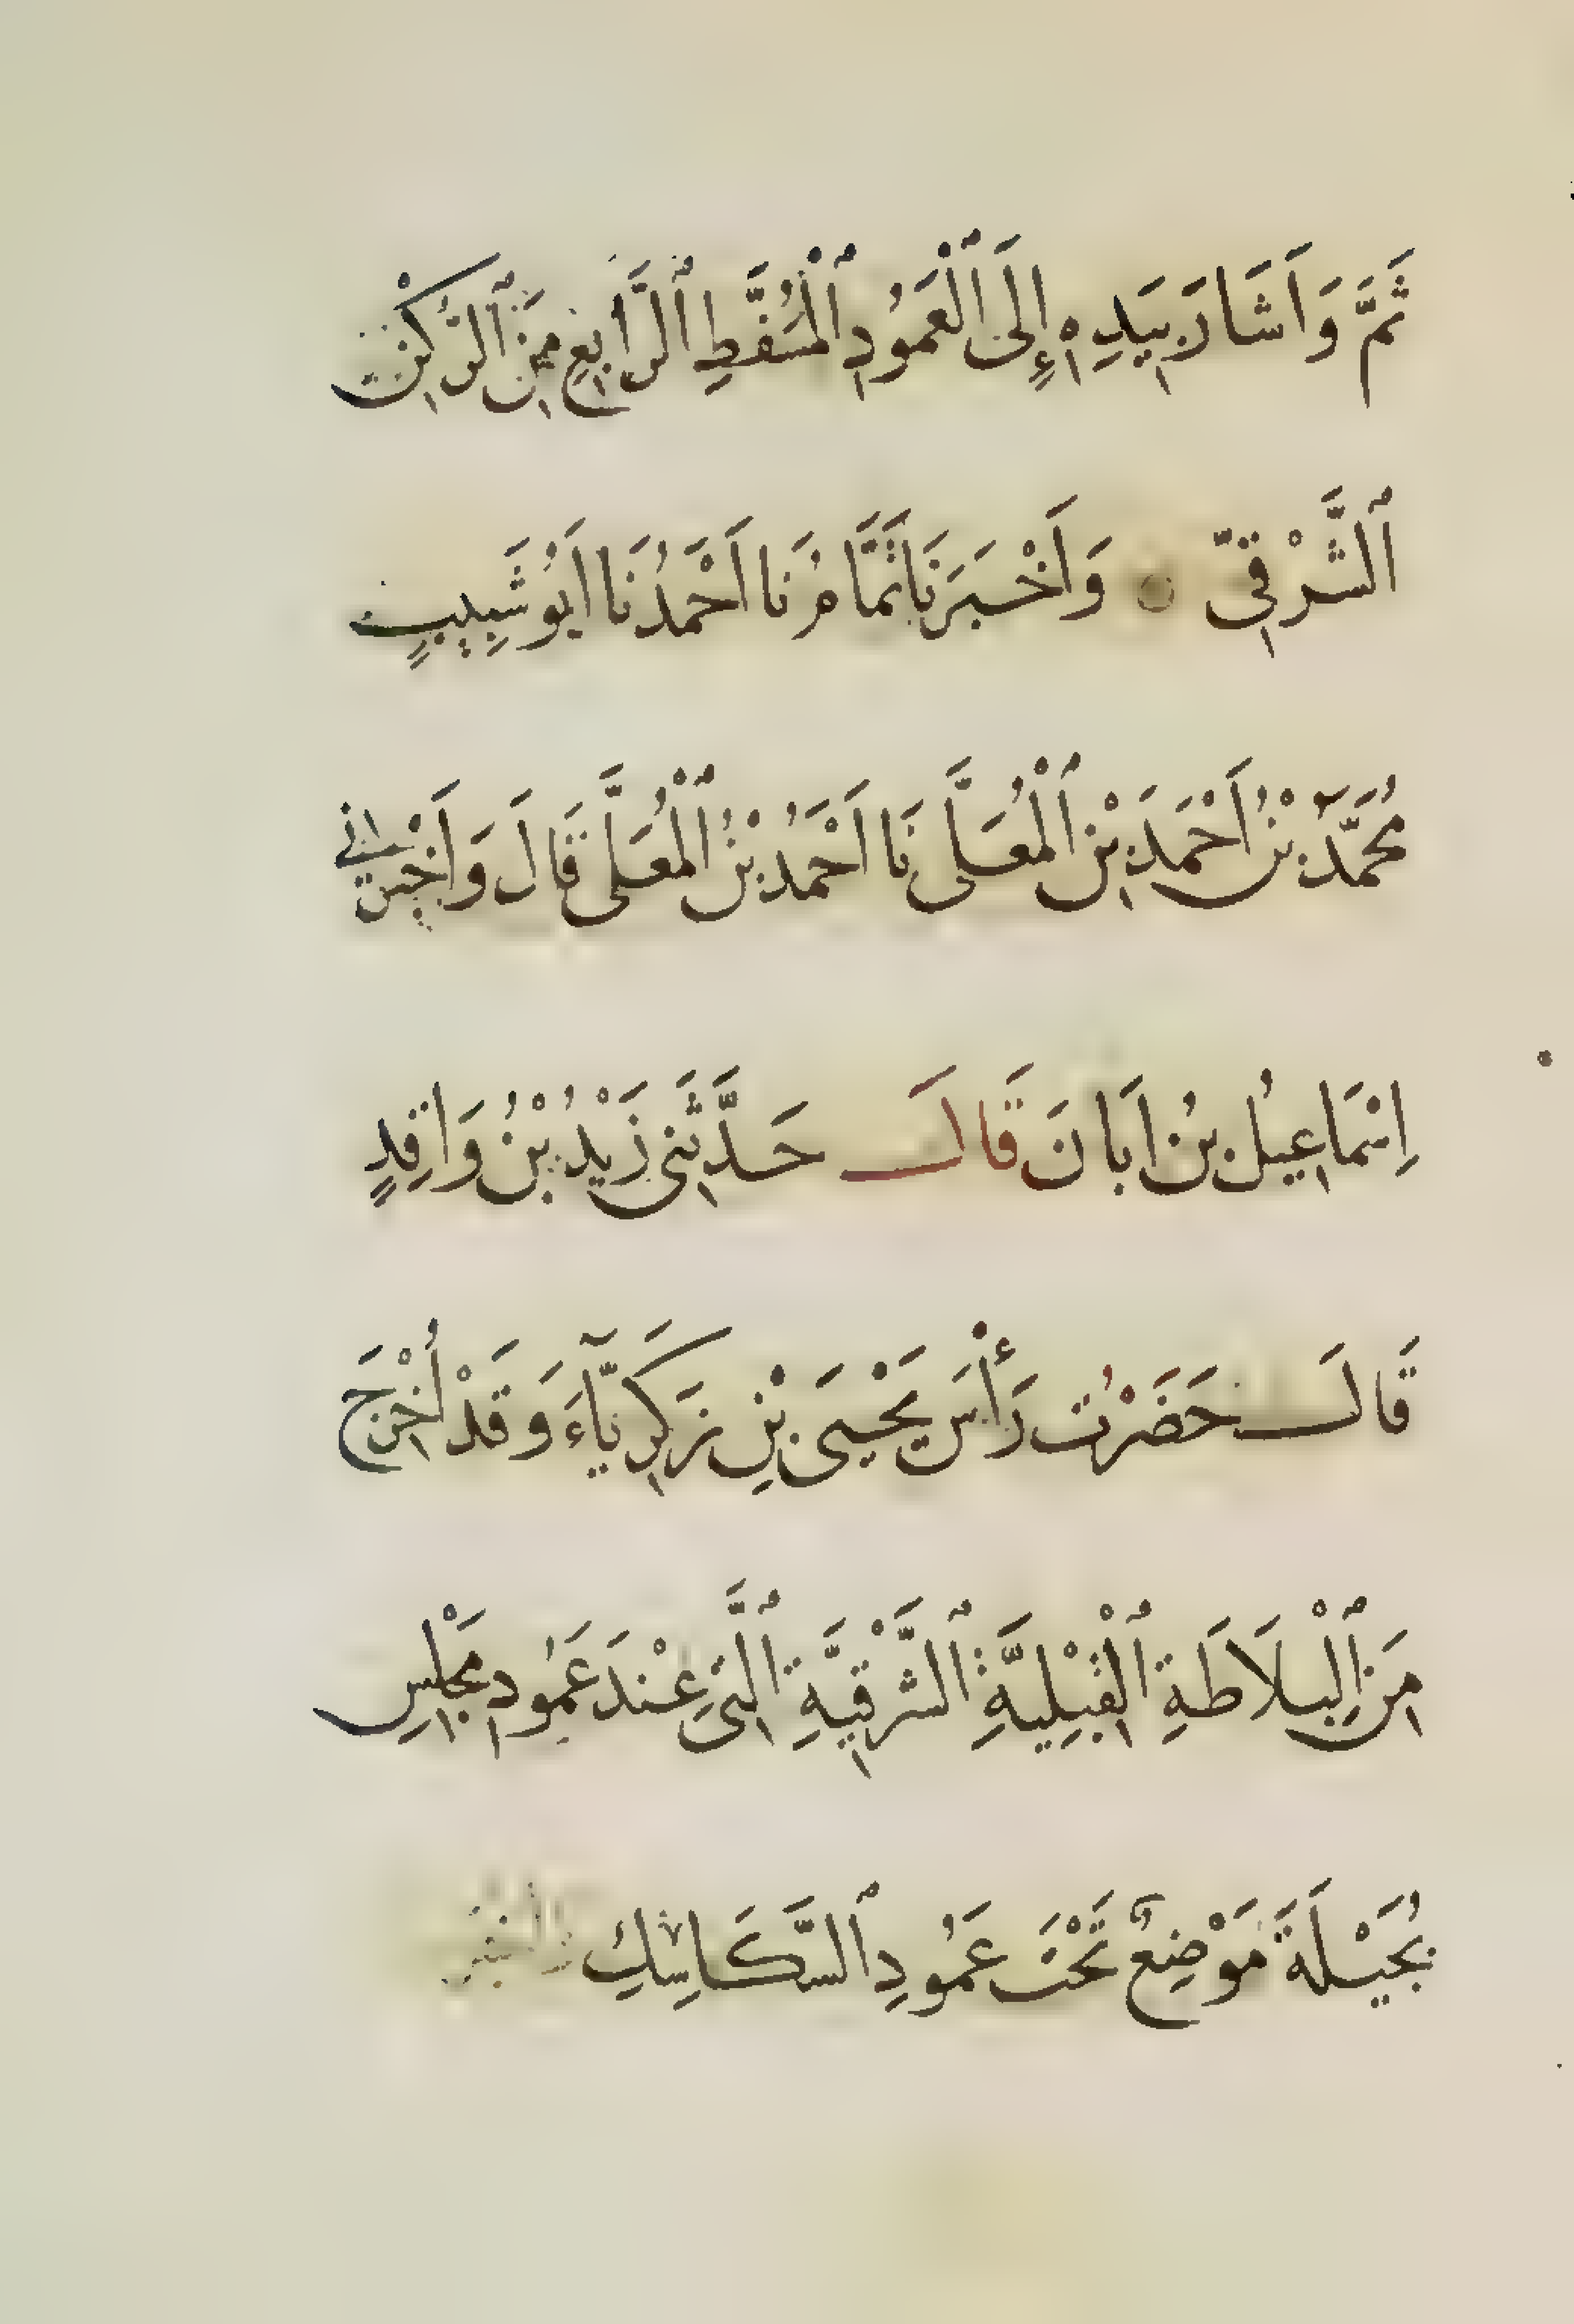 ثَمَّ وَاَشَارَ بِيَدِهِ إِلَى ٱلْعَمُودِ ٱلْمُسَفَّطِ ٱلرَّابِعِ مِنَ ٱلرُّكْنِ
ٱلشَّرْقِيِّ ۝ وَاَخْبَرَنَا تَمَّامُ نَا اَحْمَدُ نَا اَبُو شَبِيبٍ
مُحَمَّدُ بْنُ اَحْمَدَ بْنِ ٱلْمُعَلَّى نَا اَحْمَدُ بْنُ ٱلْمُعَلَّى قَالَ وَاَخْبَرَنِي
اِسْمَاعِيلُ بْنُ اَبَانَ قَالَ حَدَّثَنِي زَيْدُ بْنُ وَاقِدٍ
قَالَ حَضَرْتُ رَأْسَ يَحْيَى بْنِ زَكَرِيَّآءَ وَقَدْ اُخْرِجَ
مِنَ ٱلْبِلَاطَةِ ٱلْقِبْلِيَّةِ ٱلشَّرْقِيَّةِ ٱلَّتِي عِنْدَ عَمُودِ مَجْلِسِ
بُجَيْلَةَ مَوْضِعٌ تَحْتَ عَمُودِ ٱلسَّكَاسِكِ